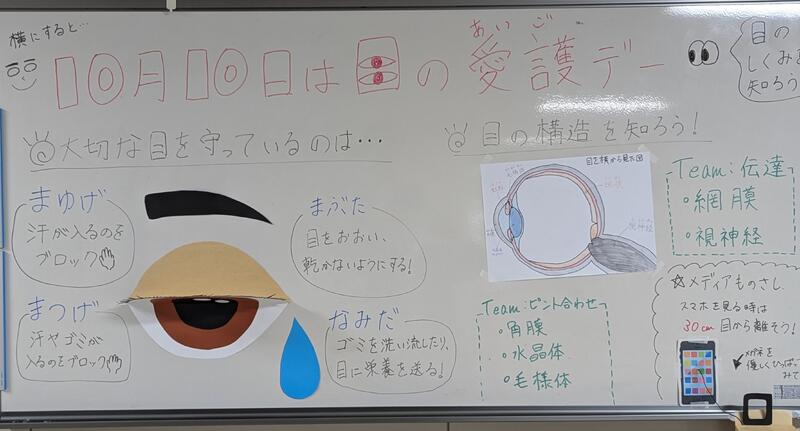 横にすると…
10月10日は目の愛護デー
あいご
目の
しくみを
知ろう
大切な目を守っているのは…
目の構造を知ろう!
まゆげ
汗が入るのを
ブロック
まぶた
目をおおい、
乾かないようにする!
まつげ
汗やゴミが
入るのをブロック
なみだ
ゴミを洗い流したり、
目に栄養を送る!
目を横から見た図
Team:伝達
・網膜
・視神経
Team:ピント合わせ
・角膜
・水晶体
・毛様体
☆メディアものさし
スマホを見る時は
30cm 目から離そう!
優しくひっぱって
みて